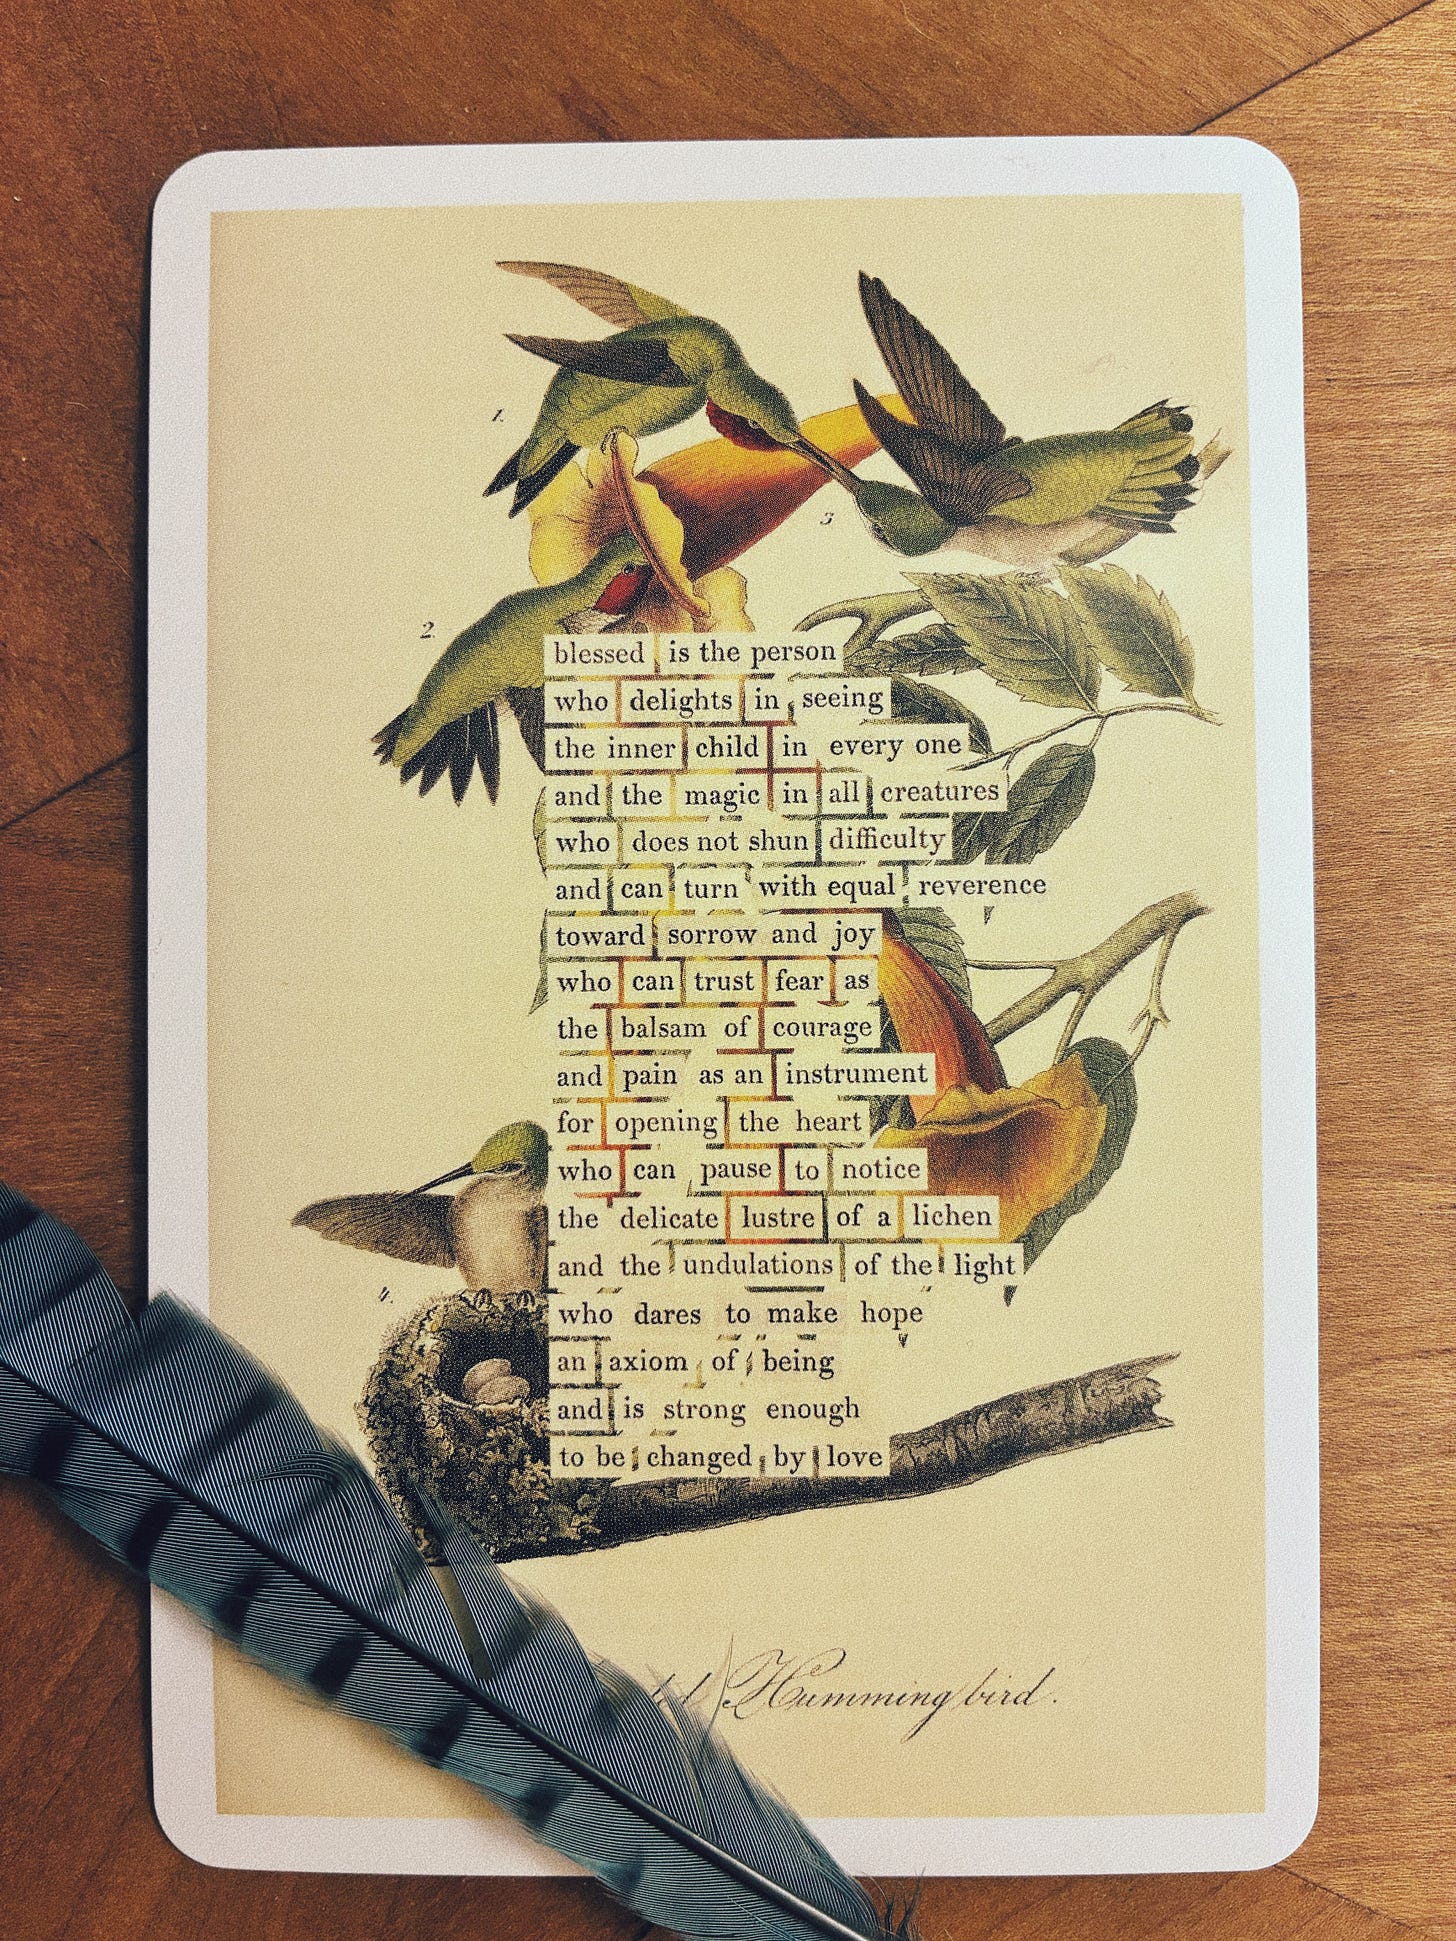 1.
3
2.
blessed is the person
who delights in seeing
the inner child in every one
and the magic in all creatures
who does not shun difficulty
and can turn with equal reverence
toward sorrow and joy
who can trust fear as
the balsam of courage
and pain as an instrument
for opening the heart
who can pause to notice
the delicate lustre of a lichen
and the undulations of the light
who dares to make hope
an axiom of being
and is strong enough
to be changed by love
4.
Hummingbird.